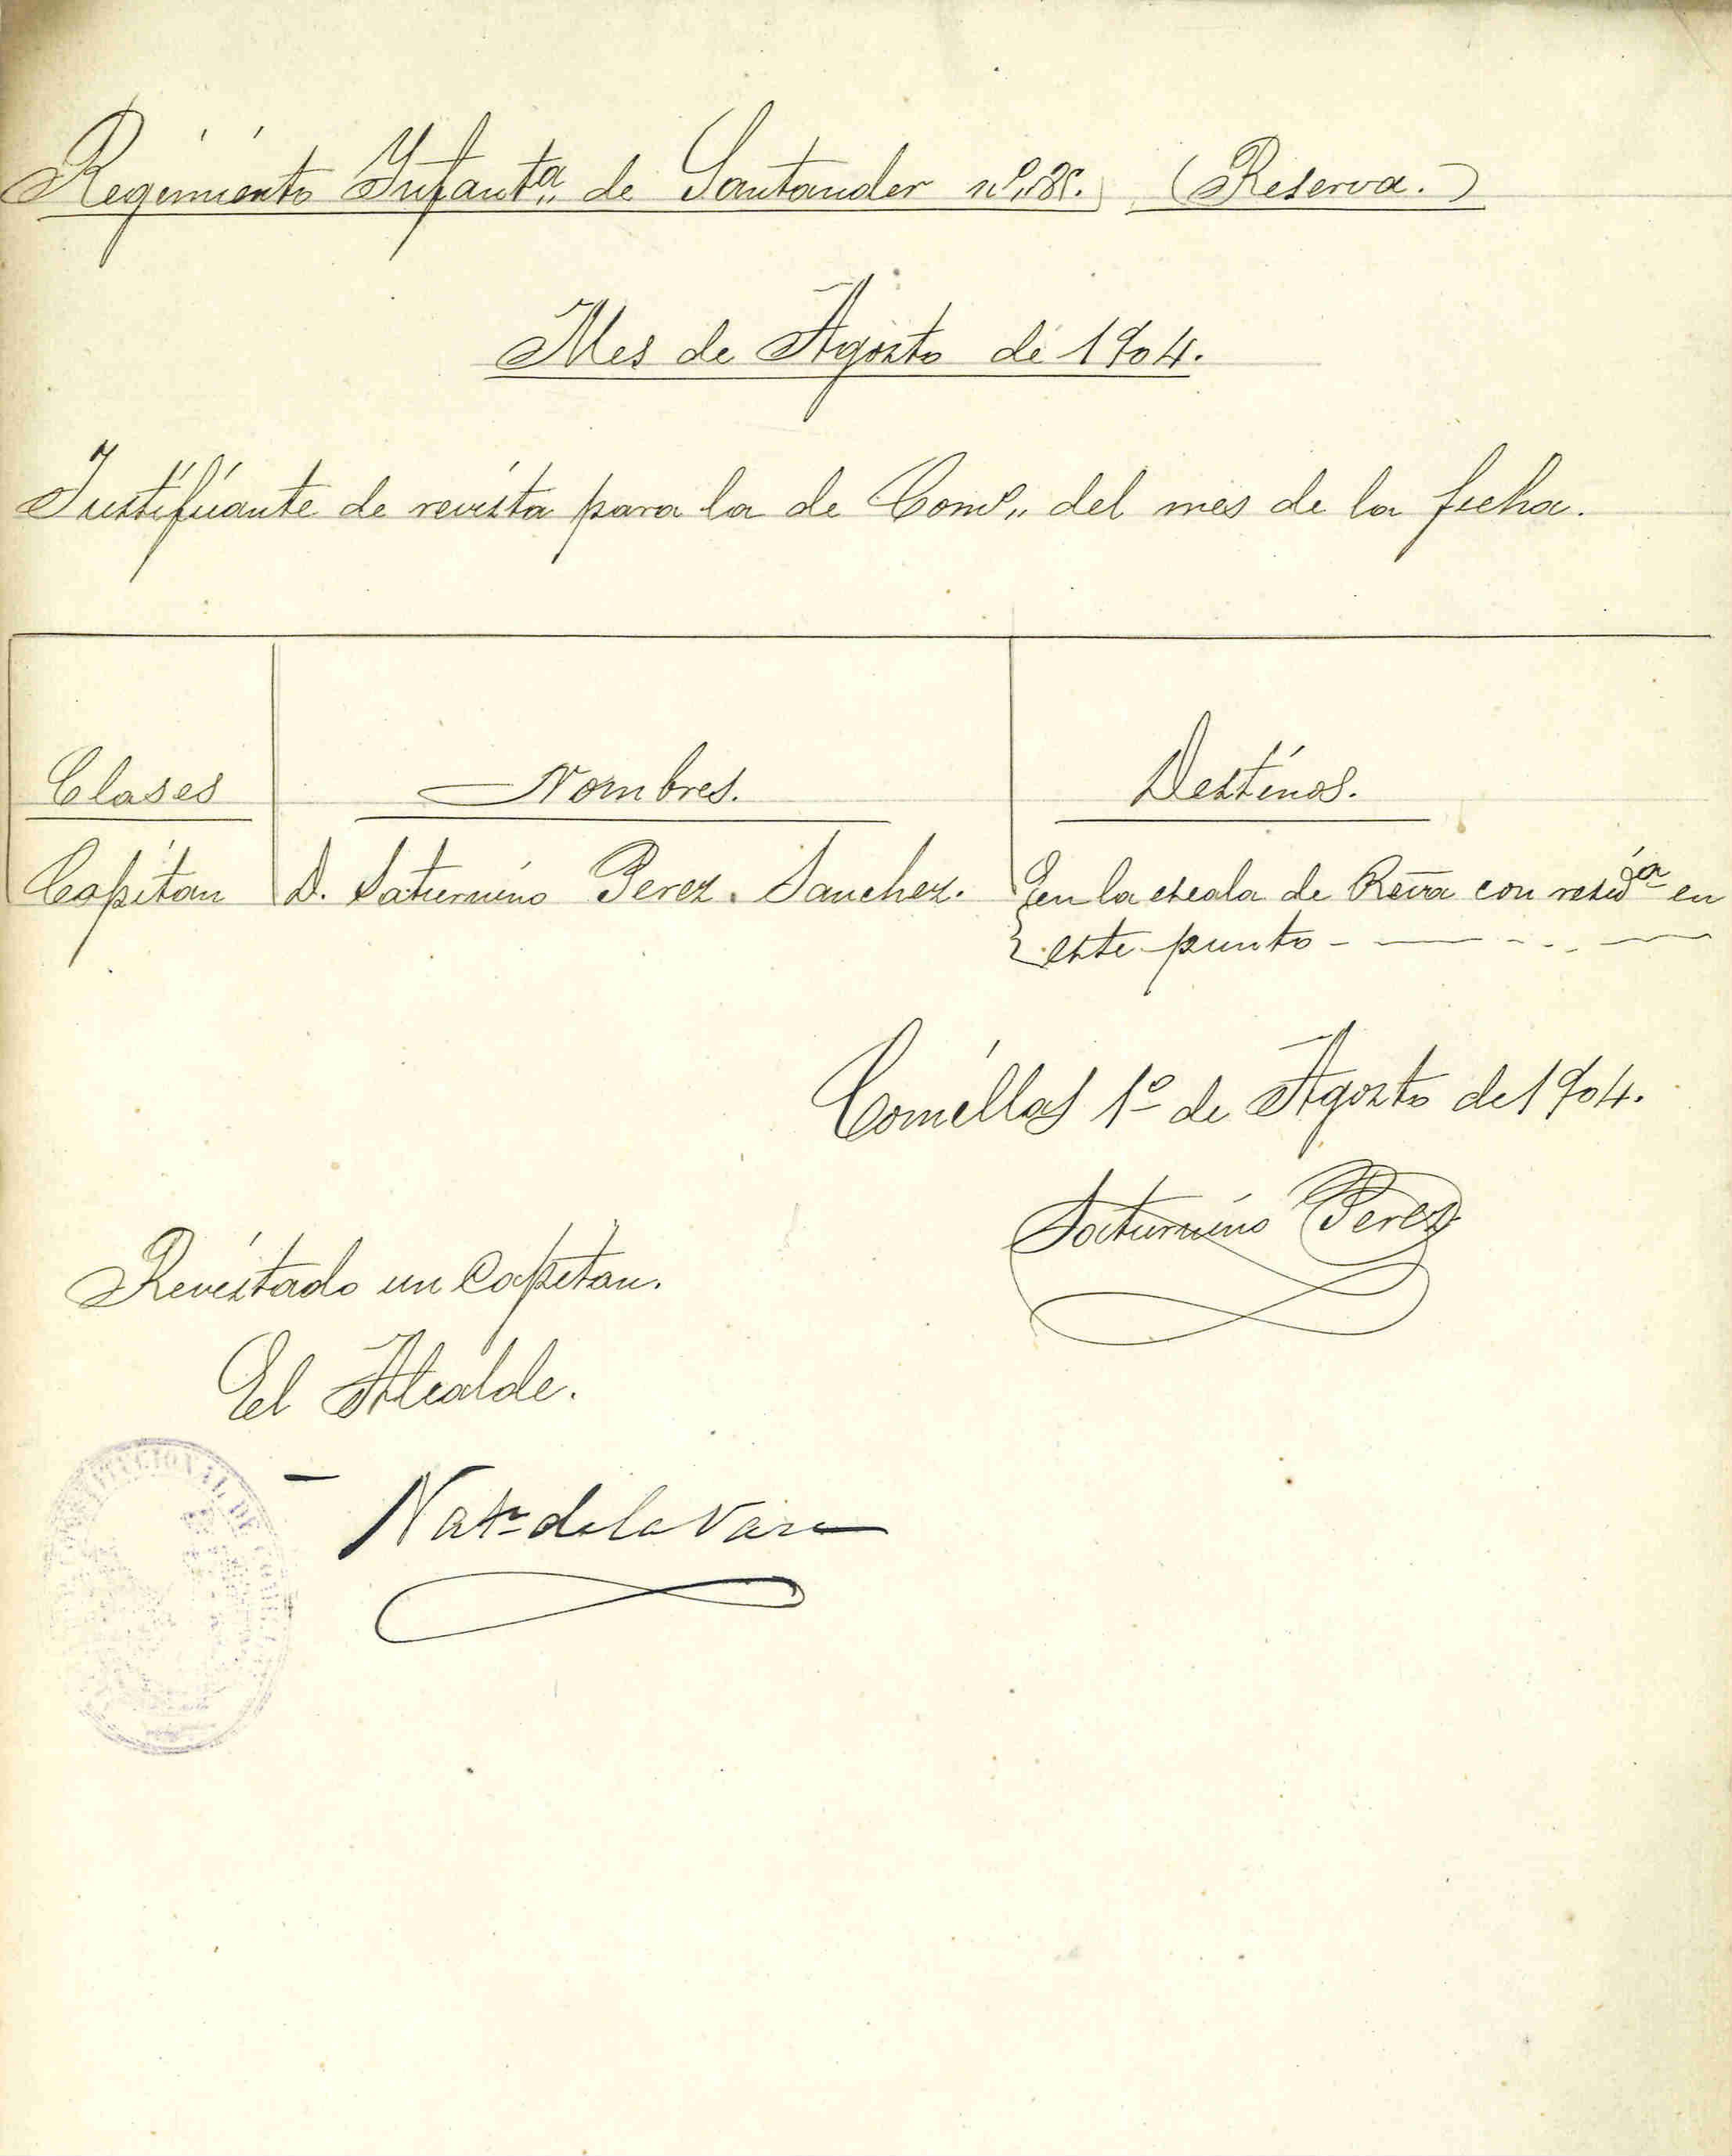 Regimiento Infantª de Santander nº 85. (Reserva.)
Mes de Agosto de 1904.
Justificante de revista para la de Comº del mes de la fecha.
Clases Nombres. Destinos.
Capitan D. Saturnino Perez Sanchez. En la escala de Rvª con residª en
este punto
Comillas 1º de Agosto de 1904.
Saturnino Perez
Revistado un Capitan.
El Alcalde.
de la Vara
CONSTITUCIONAL DE